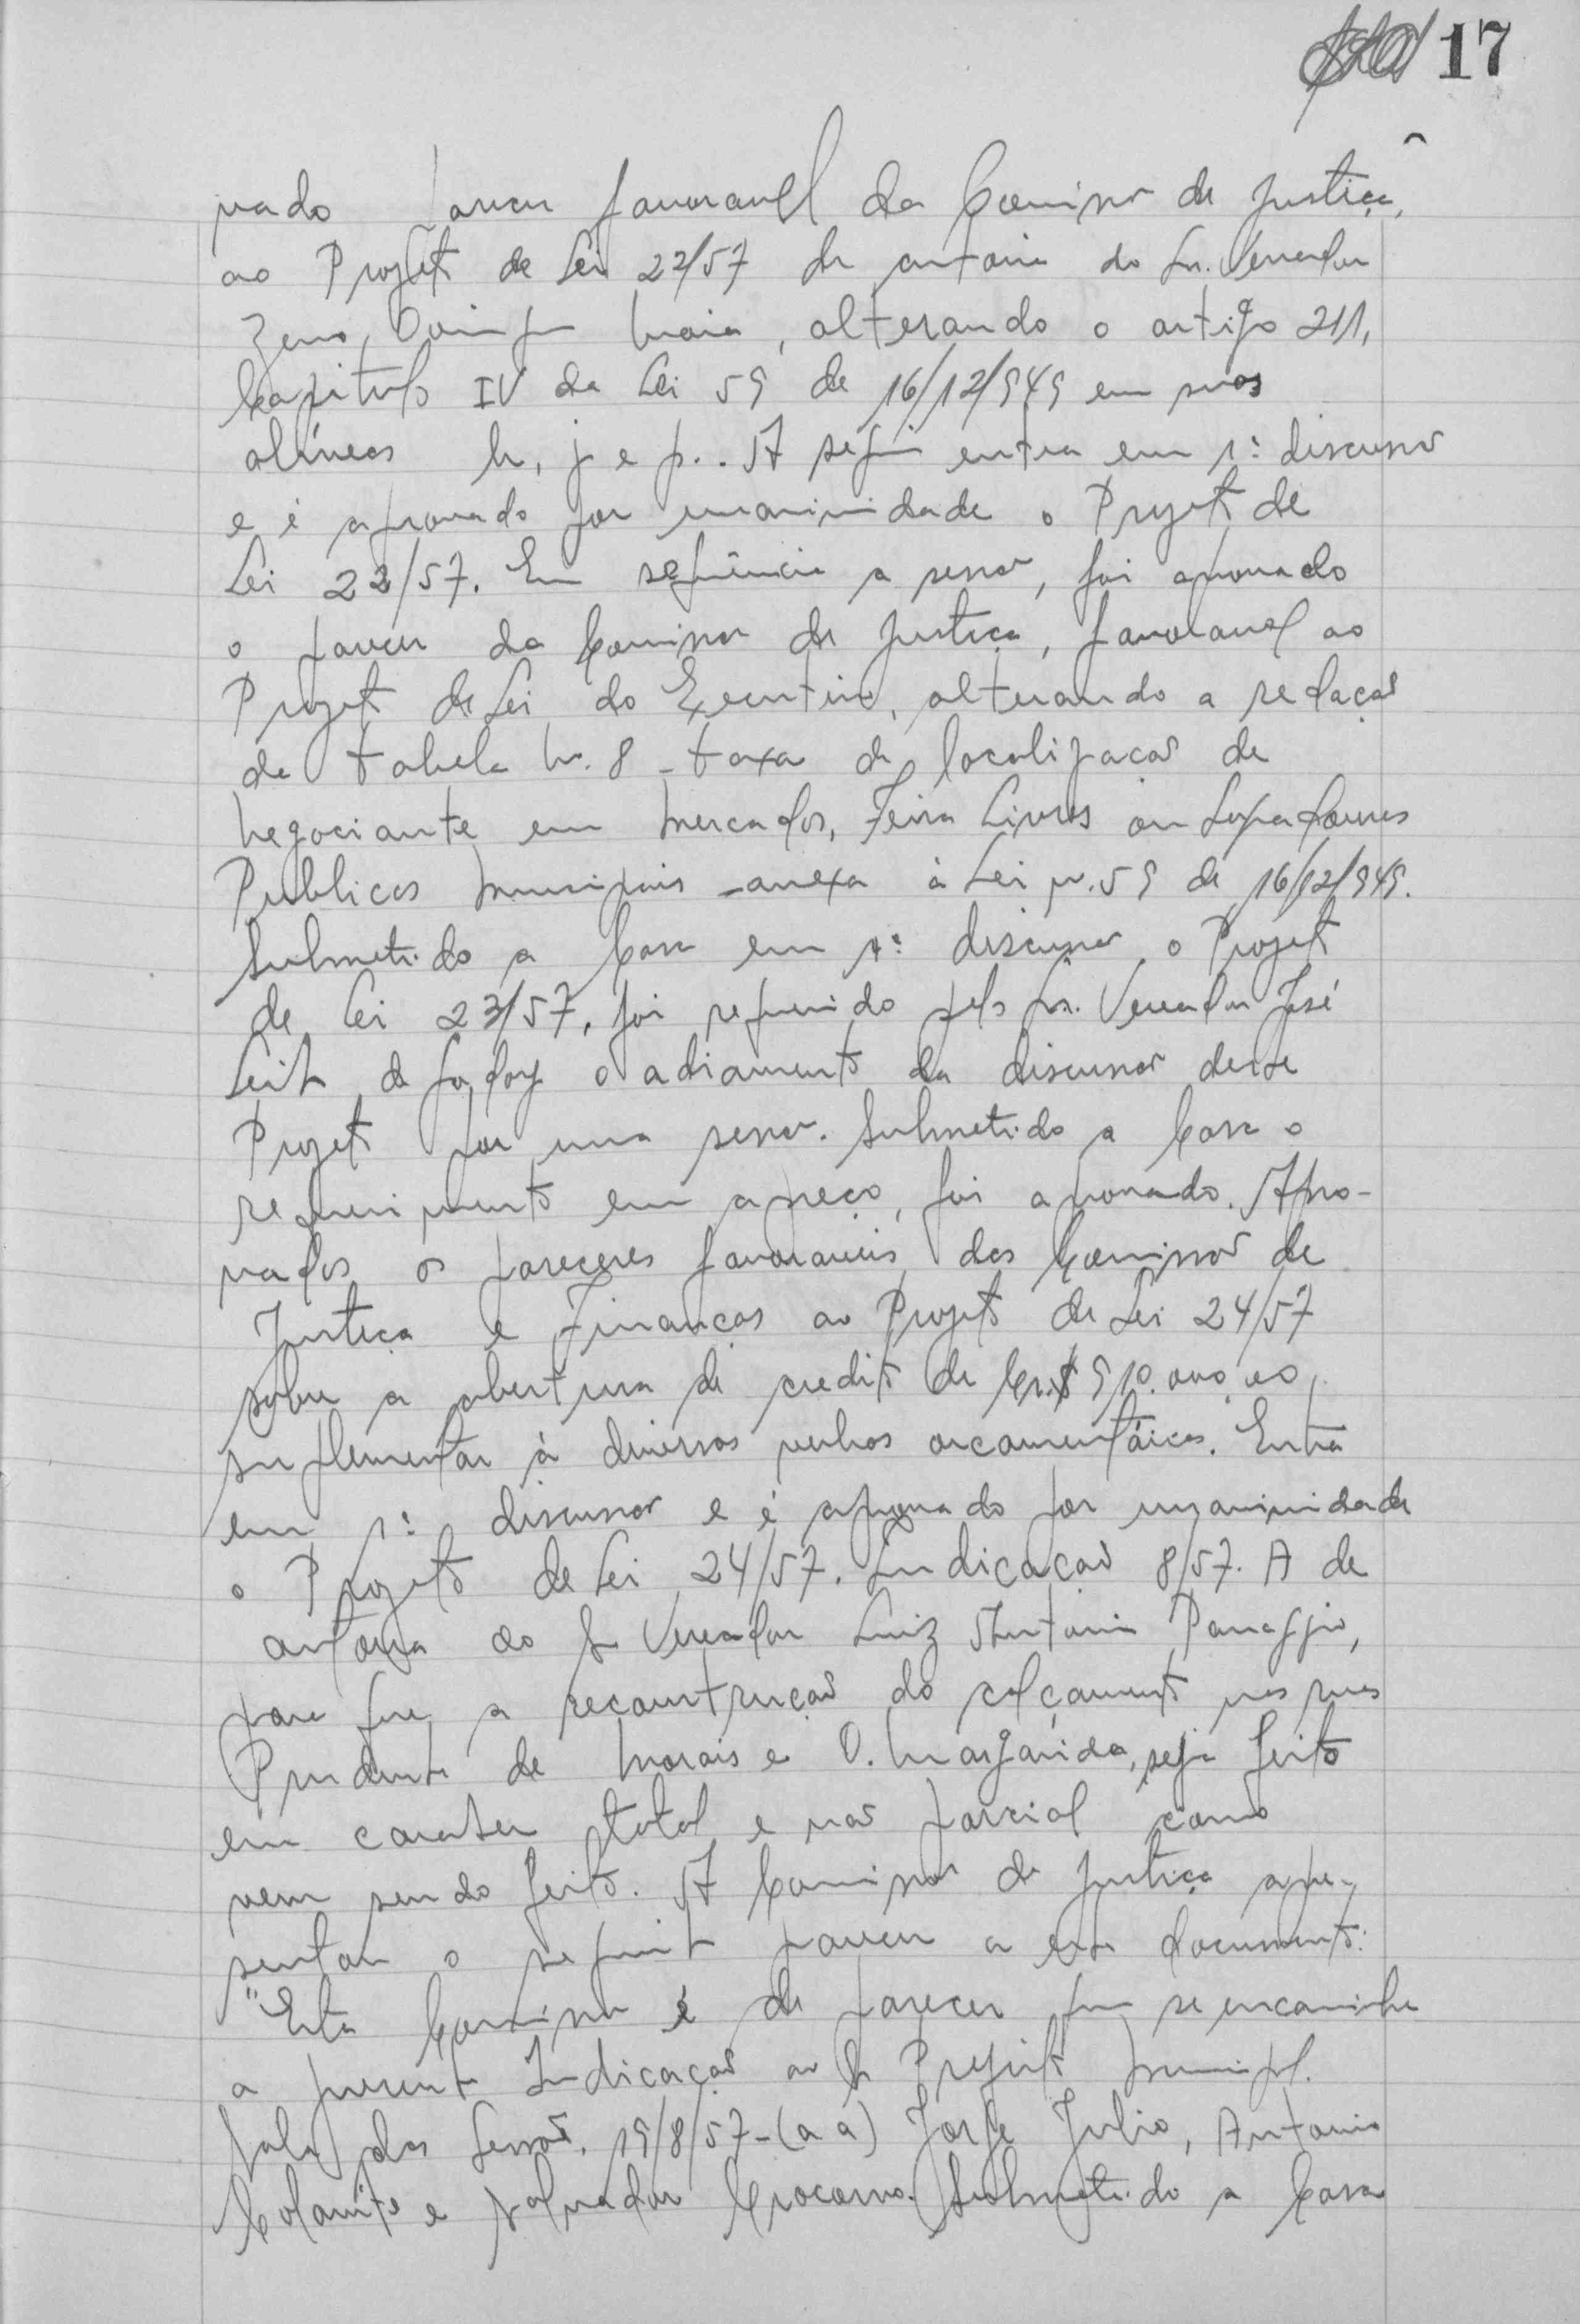 17
vado parecer favoravel da Comissão de Justiça,
ao Projeto de Lei 22/57 de autoria do Sr. Vereador
Zeno Maia, alterando o artigo 211,
Capitulo IV da Lei 59 de 16/12/949 em suas
alíneas h, j e p.. A seguir entra em 1ª discussão
e é aprovado por unanimidade o Projeto de
Lei 22/57. Em sequência a sessão, foi aprovado
o parecer da Comissão de Justiça, favoravel ao
Projeto de Lei do Executivo, alterando a redação
da tabela n. 8 - taxa de localização de
negociante em Mercados, Feira Livres ou Logradouros
Publicos Municipais - anexa à Lei n. 59 de 16/12/949.
Submetido a Casa em 1ª discussão o Projeto
de Lei 23/57, foi requerido pelo Sr. Vereador José
Leite de Godoy o adiamento da discussão desse
Projeto por uma sessão. Submetido a Casa o
requerimento em apreço, foi aprovado. Apro-
vados os pareceres favoraveis das Comissões de
Justiça e Finanças ao Projeto de Lei 24/57
sobre a abertura de credito de Cr.$ 910.000,00,
suplementar à diversas verbas orçamentáicas. Entra
em 1ª discussão e é aprovado por unanimidade
o Projeto de Lei 24/57. Indicação 8/57. A de
autoria do Sr Vereador Luiz Antonio Panaggio,
para que a reconstrução do calçamento nas ruas
Prudente de Morais e D. Margárida, seja feito
em carater total e não parcial como
vem sendo feito. A Comissão de Justiça apre-
sentou o seguinte parecer a este documento:
"Esta Comissão é de parecer que se encaminhe
a presente Indicação ao Sr Prefeito Municipal.
Sala das Sessões, 19/8/57 - (a a) Jorge Julio, Antonio
e Salvador Submetido a Casa